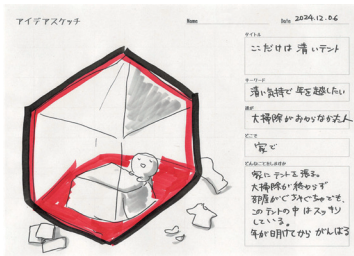 アイデアスケッチ
Name
Date 2024.12.06
タイトル
ここだけは清いテント
キーワード
清い気持で年を越したい
誰が
大掃除がおわらなか大人
どこで
家で
家にテントを張る。
大掃除が終わらず
部屋がぐちゃぐちゃでも、
このテントの中はスッキリ
している。
年が明けてからがんばる